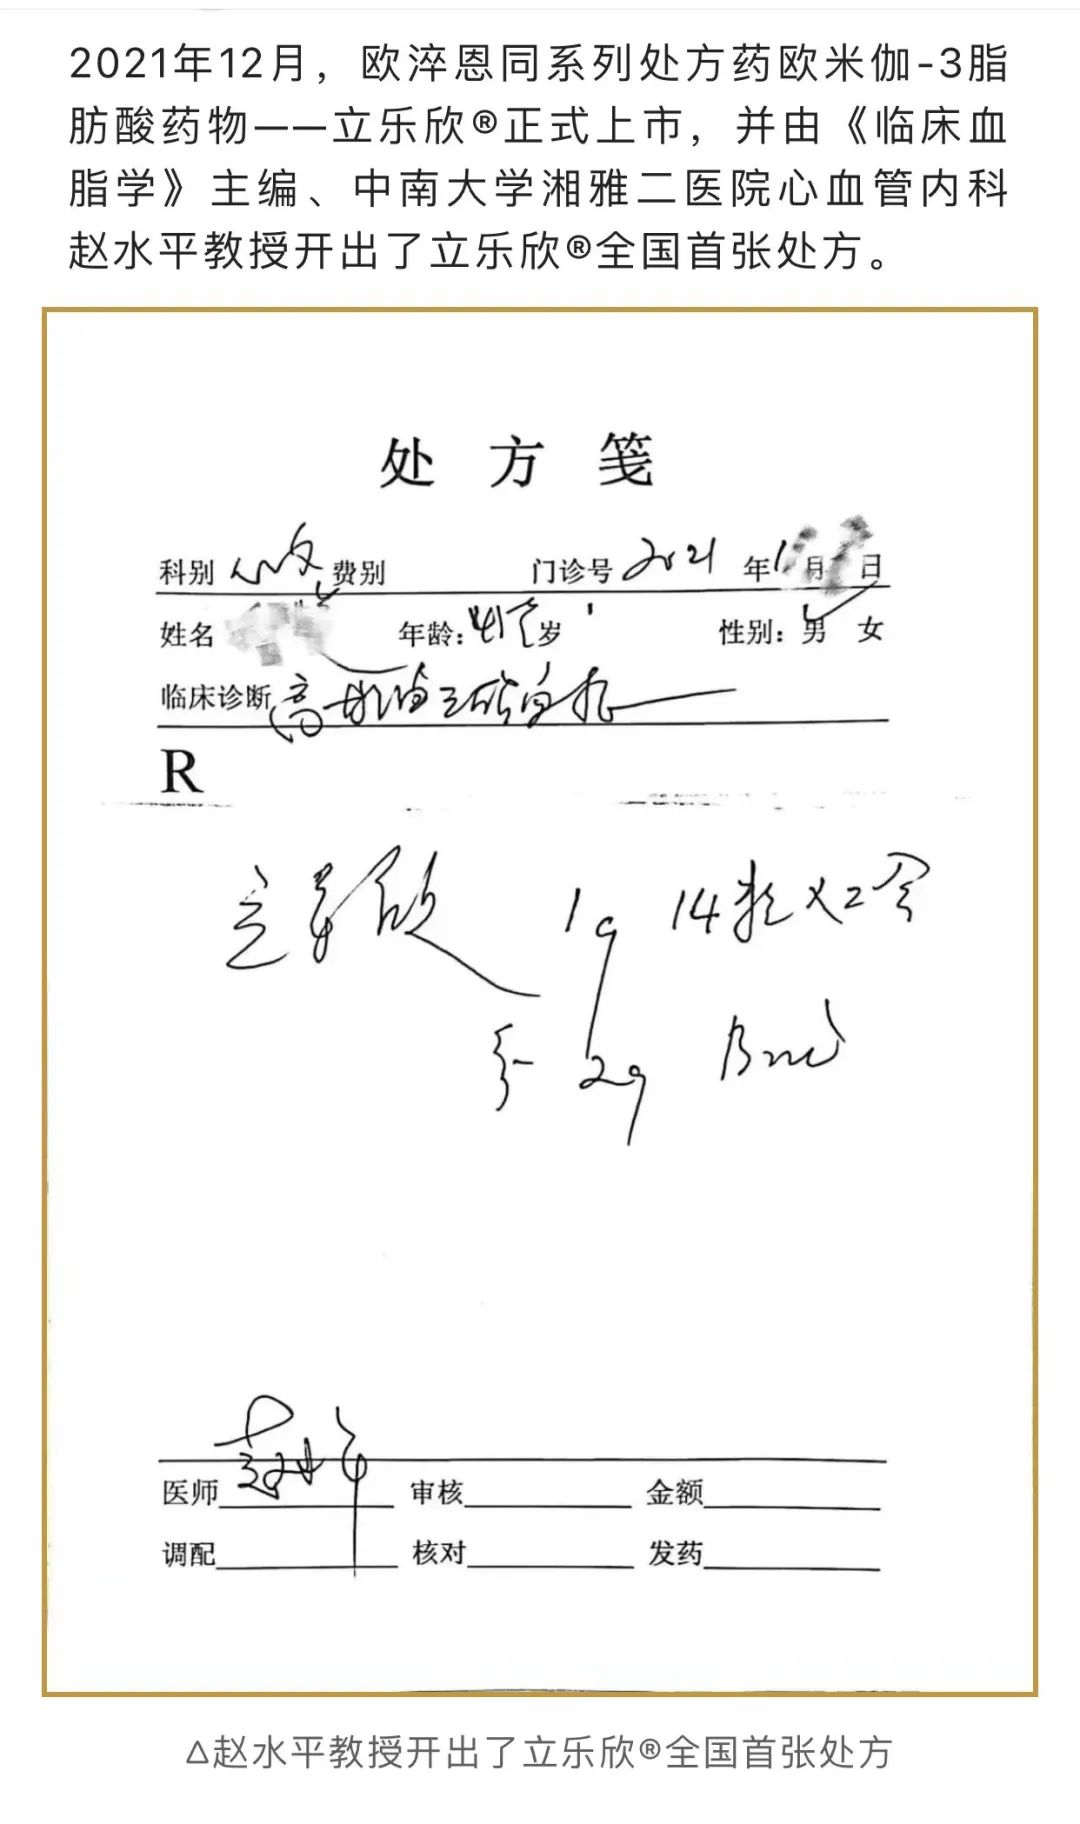 2021年12月，欧淬恩同系列处方药欧米伽-3脂
肪酸药物——立乐欣®正式上市，并由《临床血
脂学》主编、中南大学湘雅二医院心血管内科
赵水平教授开出了立乐欣®全国首张处方。
处 方 笺
科别 心内 费别 门诊号 2021 年 1 月 日
姓名 年龄: 岁 性别: 男 女
临床诊断 高甘油三酯血症
R
立乐欣 1g 14粒×2盒
2g Bid
医师 赵水平 审核 金额
调配 核对 发药
△赵水平教授开出了立乐欣®全国首张处方